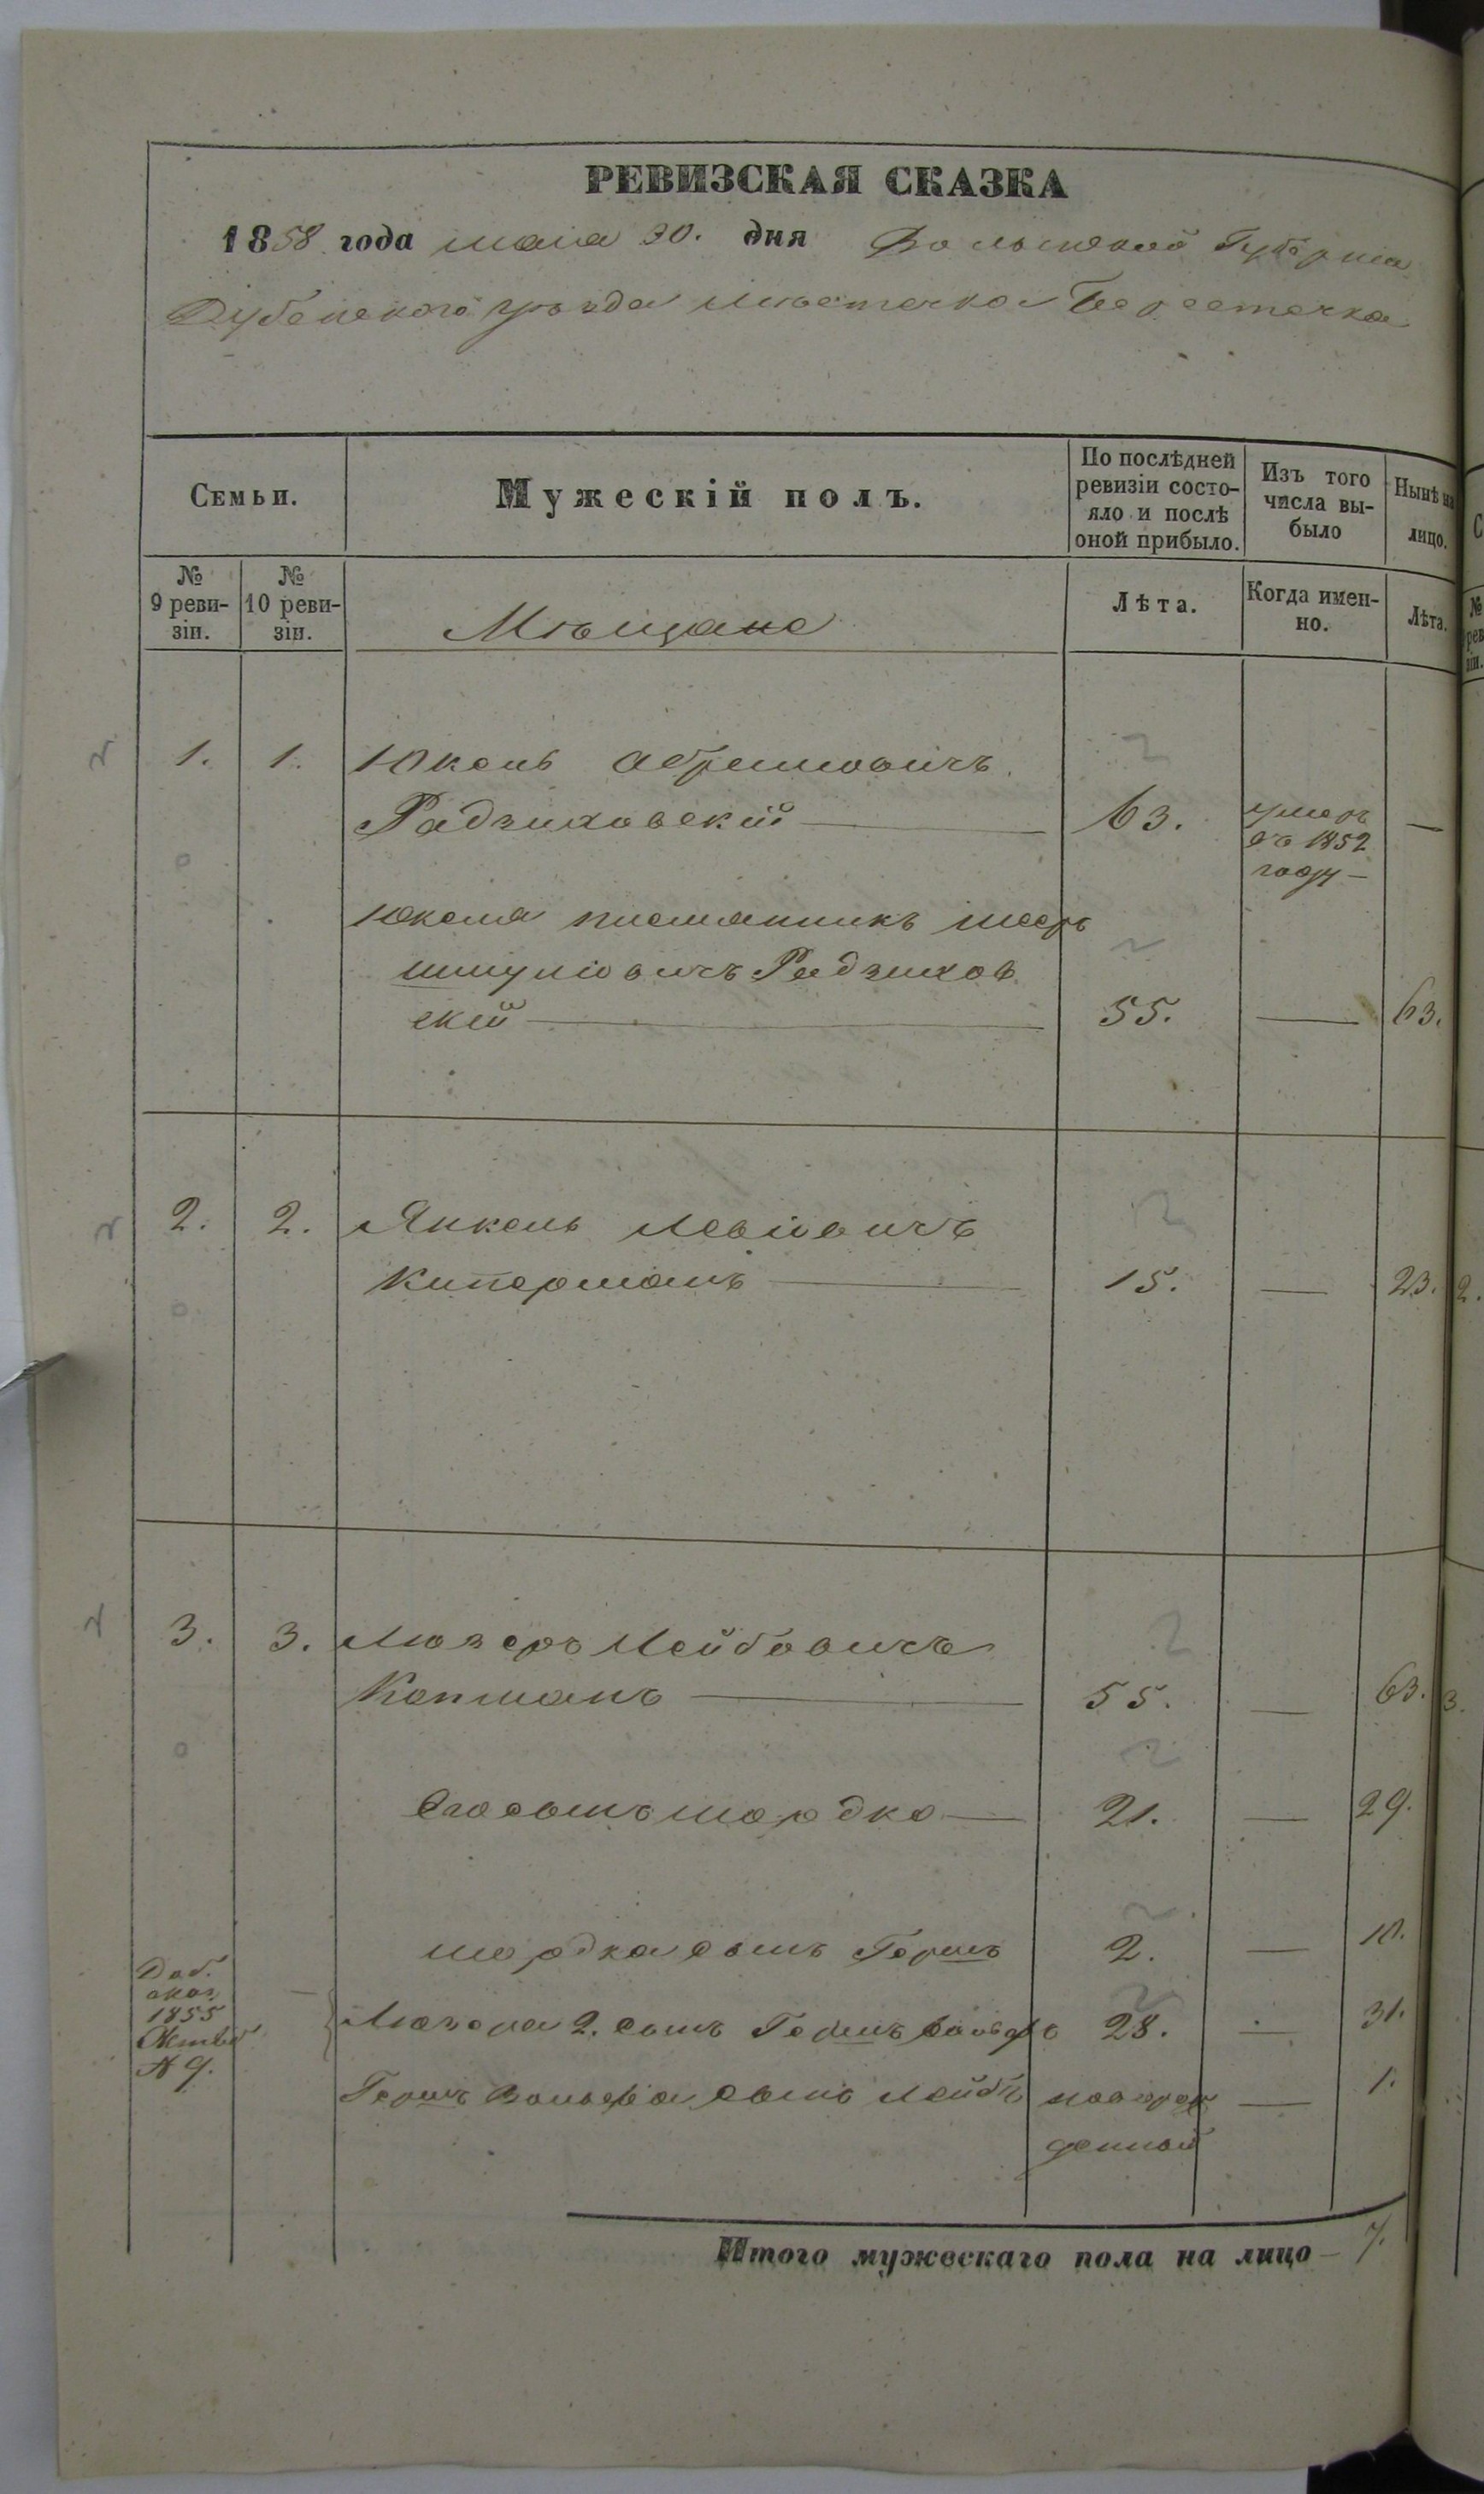 РЕВИЗСКАЯ СКАЗКА
1858 года мая 30. дня Волынской Губернiи
Дубенскаго уѣзда мѣстечка Берестечка
Семьи.
Мужескiй полъ.
По послѣдней ревизiи состояло и послѣ оной прибыло.
Изъ того числа выбыло
Нынѣ на лицо.
№ 9 ревизiи.
№ 10 ревизiи.
Мѣщане
Лѣта.
Когда именно.
Лѣта.
1. 1. Юкель Абрамовичъ
Радзиховскiй — 63. умеръ —
въ 1852
году —
Юкеля племянникъ
Шмулiовичъ Радзихов
скiй — 55. — 63.
2. 2. Янкель Левiовичъ
Киперманъ — 15. — 23.
3. 3. Люзеръ Лейбовичъ
Копманъ — 55. — 63.
Его сынъ Мордко — 21. — 29.
Мордка сынъ Гершъ 2. — 10.
Доб.
сказ.
1855
№ 9.
Люзера 2. сынъ Гершъ Вольфъ 28. — 31.
Гершъ Вольфа сынъ Лейба новорож — 1.
денный
Итого мужескаго пола на лицо — 7.